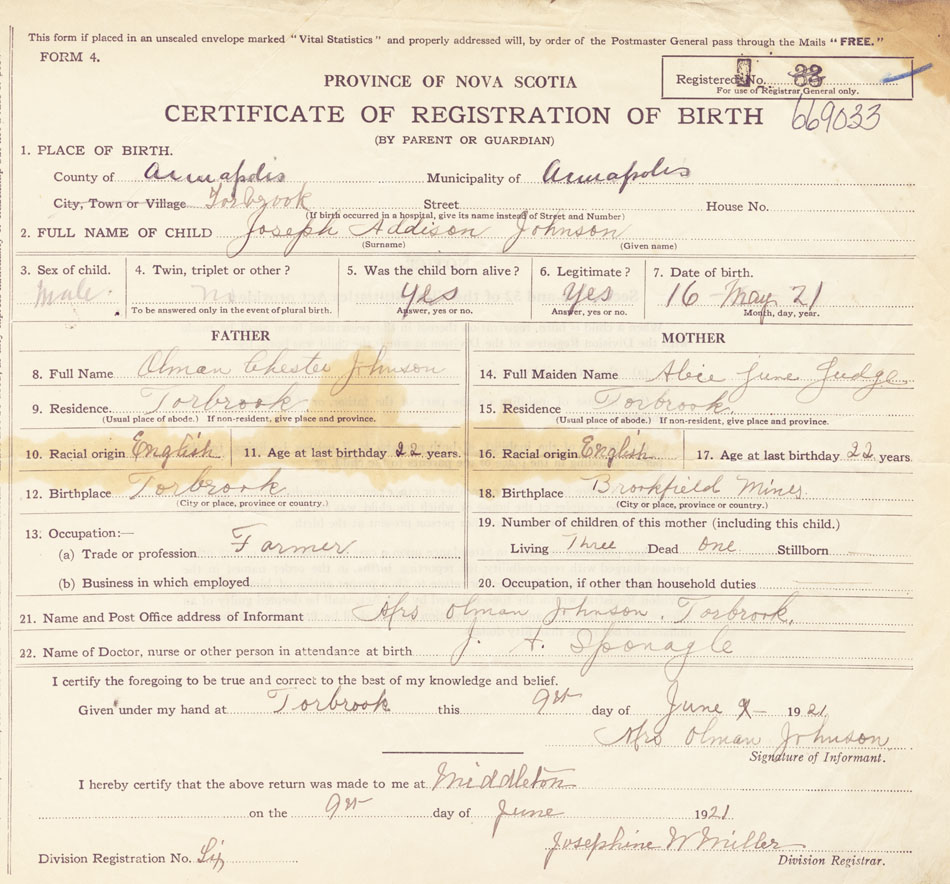 This form if placed in an unsealed envelope marked "Vital Statistics" and properly addressed will, by order of the Postmaster General pass through the Mails "FREE."
FORM 4.
Registered No. 33
For use of Registrar General only.
PROVINCE OF NOVA SCOTIA
CERTIFICATE OF REGISTRATION OF BIRTH 669033
(BY PARENT OR GUARDIAN)
1. PLACE OF BIRTH.
County of Annapolis Municipality of Annapolis
City, Town or Village Torbrook Street House No.
(If birth occurred in a hospital, give its name instead of Street and Number)
2. FULL NAME OF CHILD Joseph Addison Johnson
(Surname) (Given name)
3. Sex of child. 4. Twin, triplet or other? 5. Was the child born alive? 6. Legitimate? 7. Date of birth.
Male. no yes yes 16 May 21
To be answered only in the event of plural birth. Answer, yes or no. Answer, yes or no. Month, day, year.
FATHER MOTHER
8. Full Name Olman Chester Johnson 14. Full Maiden Name Alice June Judge
9. Residence. Torbrook. 15. Residence Torbrook.
(Usual place of abode.) If non-resident, give place and province. (Usual place of abode.) If non-resident, give place and province.
10. Racial origin English 11. Age at last birthday 22 years. 16. Racial origin English 17. Age at last birthday 22 years.
12. Birthplace Torbrook 18. Birthplace Brookfield Mines
(City or place, province or country.) (City or place, province or country.)
13. Occupation:— 19. Number of children of this mother (including this child.)
(a) Trade or profession Farmer Living Three Dead One Stillborn
(b) Business in which employed 20. Occupation, if other than household duties
21. Name and Post Office address of Informant Mrs Olman Johnson. Torbrook.
22. Name of Doctor, nurse or other person in attendance at birth J. A. Sponagle
I certify the foregoing to be true and correct to the best of my knowledge and belief.
Given under my hand at Torbrook this 9th day of June 9 1921
Mrs Olman Johnson
Signature of Informant.
I hereby certify that the above return was made to me at Middleton
on the 9th day of June 1921
Josephine W Miller
Division Registration No. Six Division Registrar.